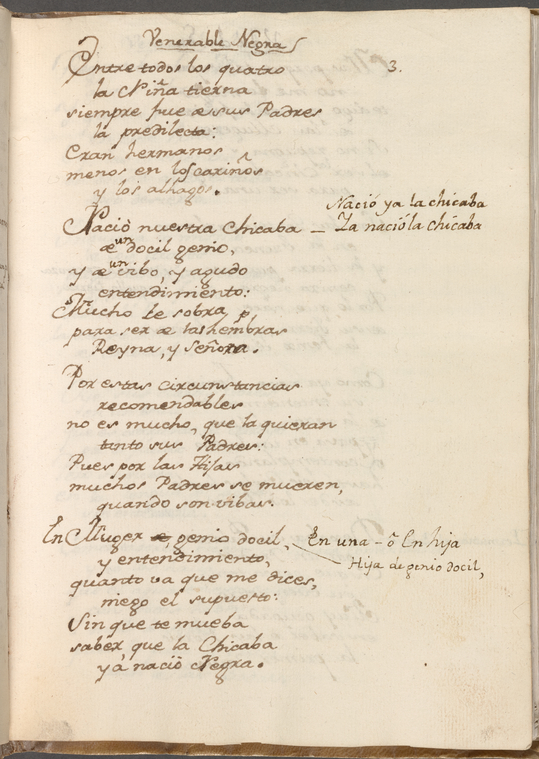 Venerable Negra
3.
Entre todos los quatro
la Niña tierna
siempre fue de sus Padres
la predilecta:
Eran hermanos
menos en los cariños
y los alhagos.
Nació ya la chicaba
Nació nuestra Chicaba — Ya nació la chicaba
de un docil genio,
y de un vibo, y agudo
entendimiento:
Mucho le sobra
para ser de las hembras
Reyna, y Señora.
Por estas circunstancias
recomendables
no es mucho, que la quieran
tanto sus Padres:
Pues por las Hijas
muchos Padres se mueren,
quando son vibas.
En Muger de genio docil, En una - ō En hija
y entendimiento, Hija de genio docil,
quanto va que me dices,
niego el supuesto:
Sin que te mueba
saber que la Chicaba
yá nació Negra.